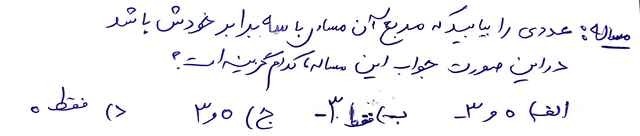 مساله: عددی را بیابید که مربع آن مساوی با سه برابر خودش باشد
در این صورت جواب این مساله کدام گزینه است؟
الف) ۰ و ۳- ب) فقط ۳- ج) ۰ و ۳ د) فقط ۰